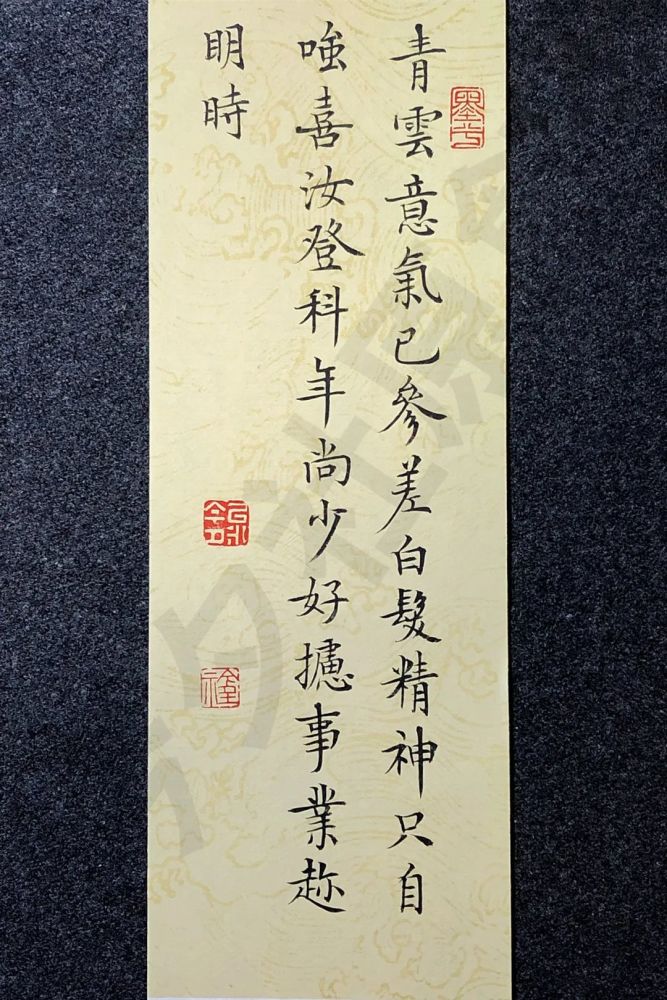 青雲意氣已參差白髮精神只自
嗤喜汝登科年尚少好攄事業趂
明時